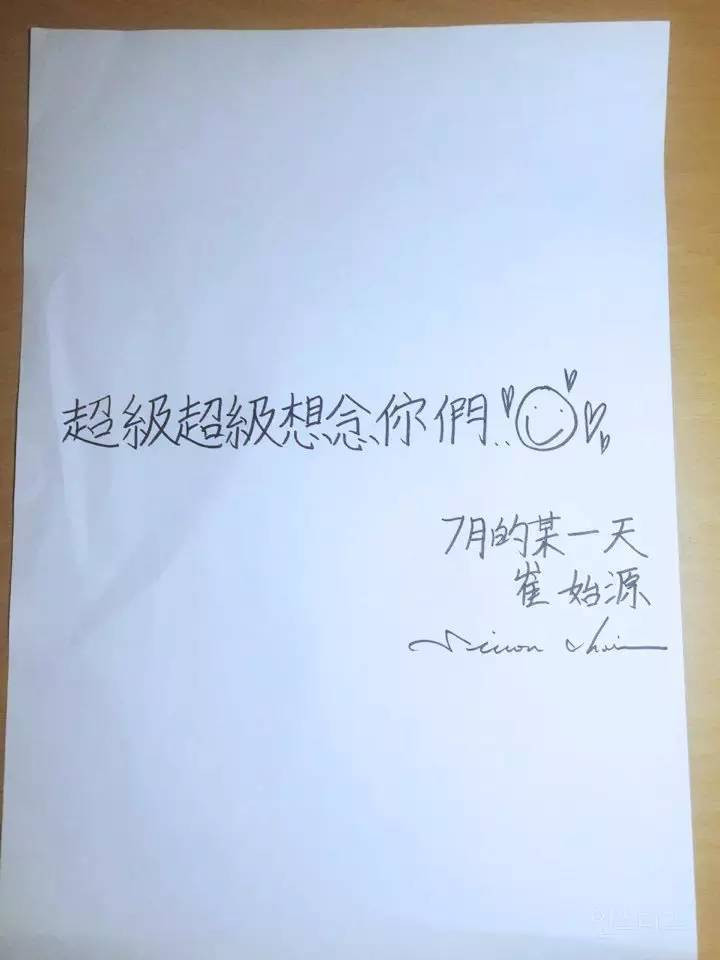 超級超級想念你們..
7月的某一天
崔始源
Siwon Choi
인스티즈